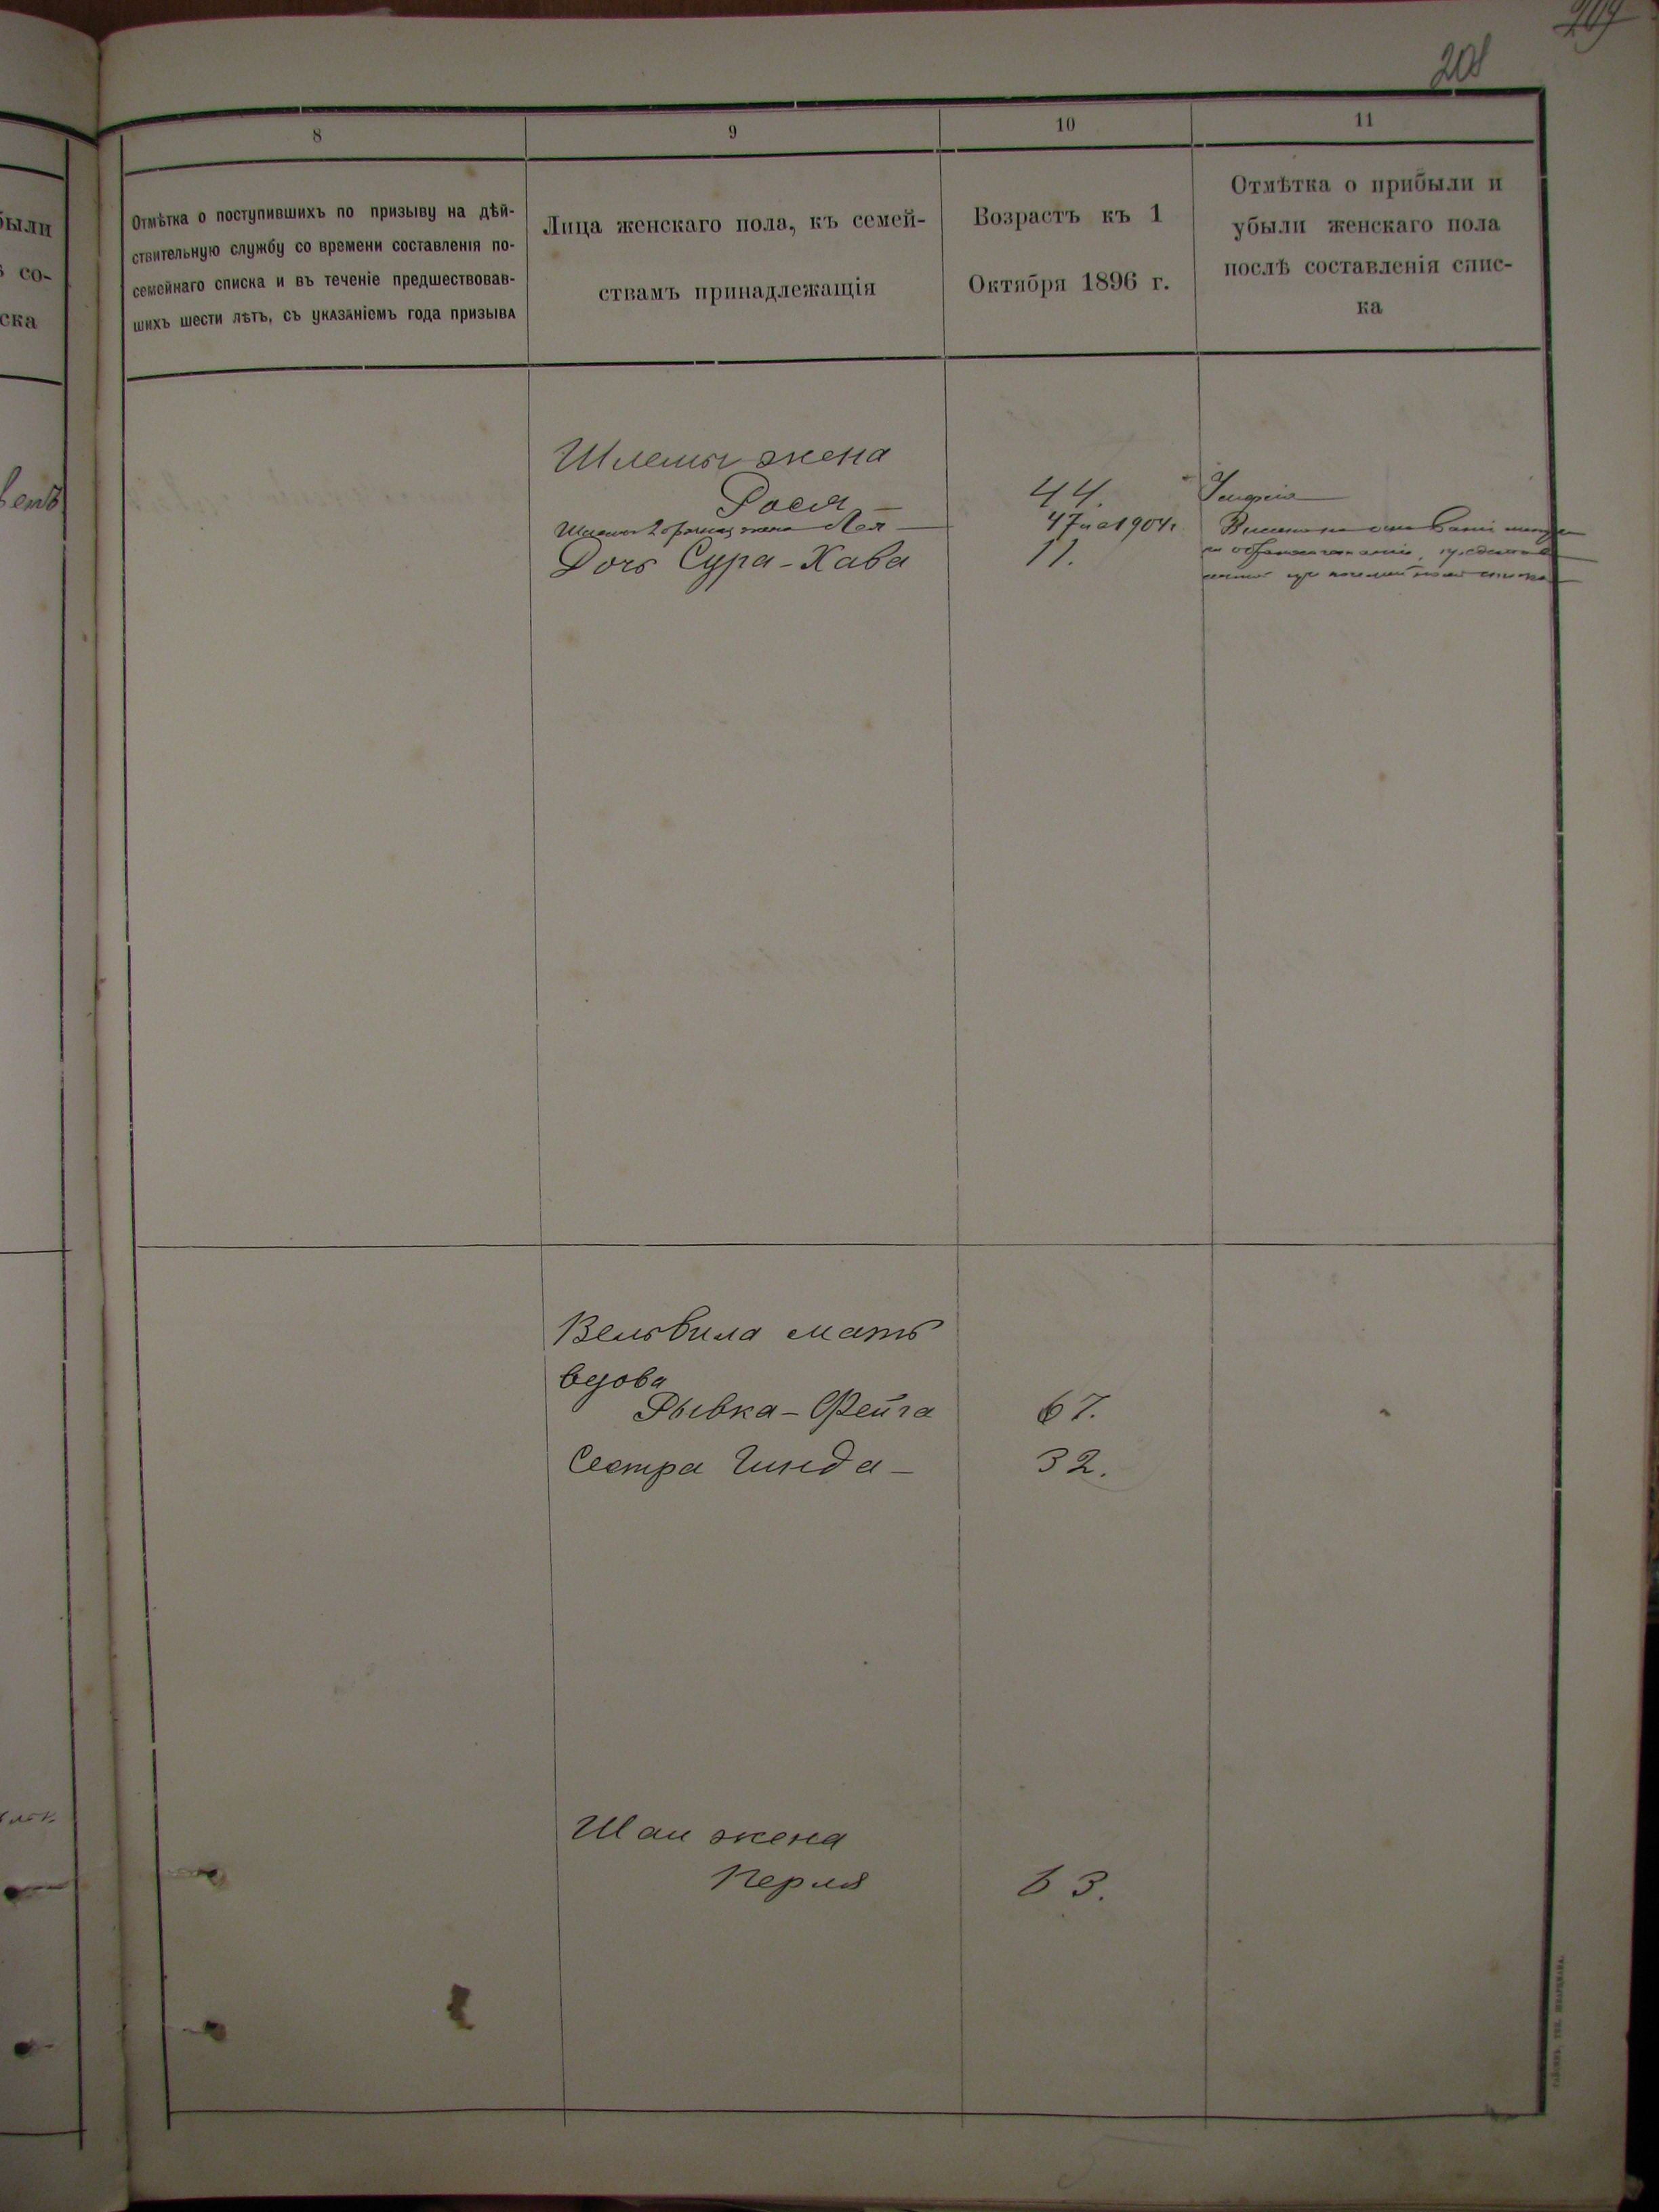 208
8
9
10
11
Отмѣтка о поступившихъ по призыву на дѣй-
ствительную службу со времени составленія по-
семейнаго списка и въ теченіе предшествовав-
шихъ шести лѣтъ, съ указаніемъ года призыва
Лица женскаго пола, къ семей-
ствамъ принадлежащія
Возрастъ къ 1
Октября 1896 г.
Отмѣтка о прибыли и
убыли женскаго пола
послѣ составленія спис-
ка
были
со-
ска
Шлемы жена
Рося 44. Умерла
жена Лея 47 на 1904г.
Дочь Сура-Хава 11.
Вельвила мать
вдова
Рывка-Фейга 67.
Сестра Гинда - 32.
Шаи жена
Перля 63.